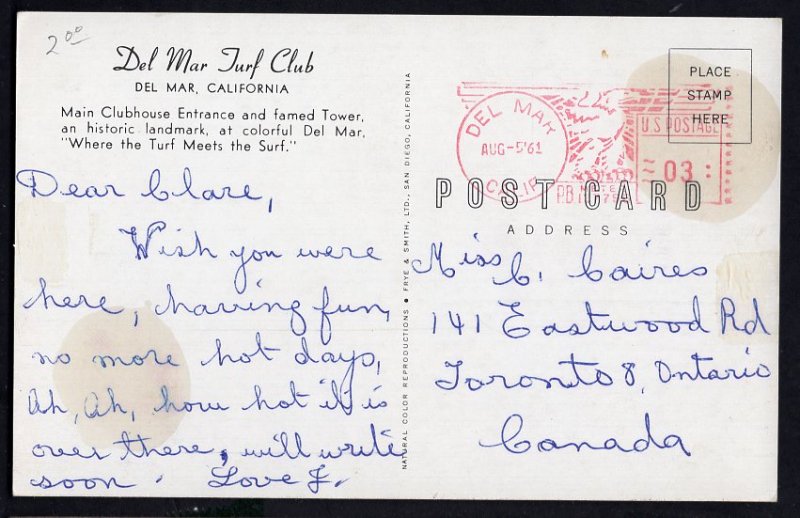 2.00
Del Mar Turf Club
DEL MAR, CALIFORNIA
Main Clubhouse Entrance and famed Tower,
an historic landmark, at colorful Del Mar,
"Where the Turf Meets the Surf."
Dear Clare,
Wish you were
here, having fun,
no more hot days,
Ah, Ah, how hot it is
over there, will write
soon. Love J.
NATURAL COLOR REPRODUCTIONS • FRYE & SMITH, LTD., SAN DIEGO, CALIFORNIA
DEL MAR
AUG-5'61
CALIF
U.S. POSTAGE
03
P.B. METER
PLACE
STAMP
HERE
POST CARD
ADDRESS
Miss C. Caires
141 Eastwood Rd
Toronto 8, Ontario
Canada